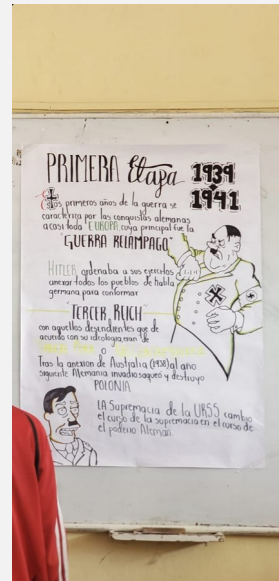 PRIMERA Etapa 1939
1941
Los primeros años de la guerra se
caracteriza por las conquistas alemanas
a casi toda EUROPA cuya principal fue la
"GUERRA RELAMPAGO"
HITLER ordenaba a sus ejercitos
unexar todos los pueblos de habla
germana para conformar
"TERCER REICH"
con aquellos descendientes que de
acuerdo con su ideologia eran de
o
Tras la anexion de Australia (1938) al año
siguiente Alemania invadio saqueó y destruyo
POLONIA
LA Supremacia de la URSS cambio
el curso de la supremacia en el curso de
el poderio Alemán.